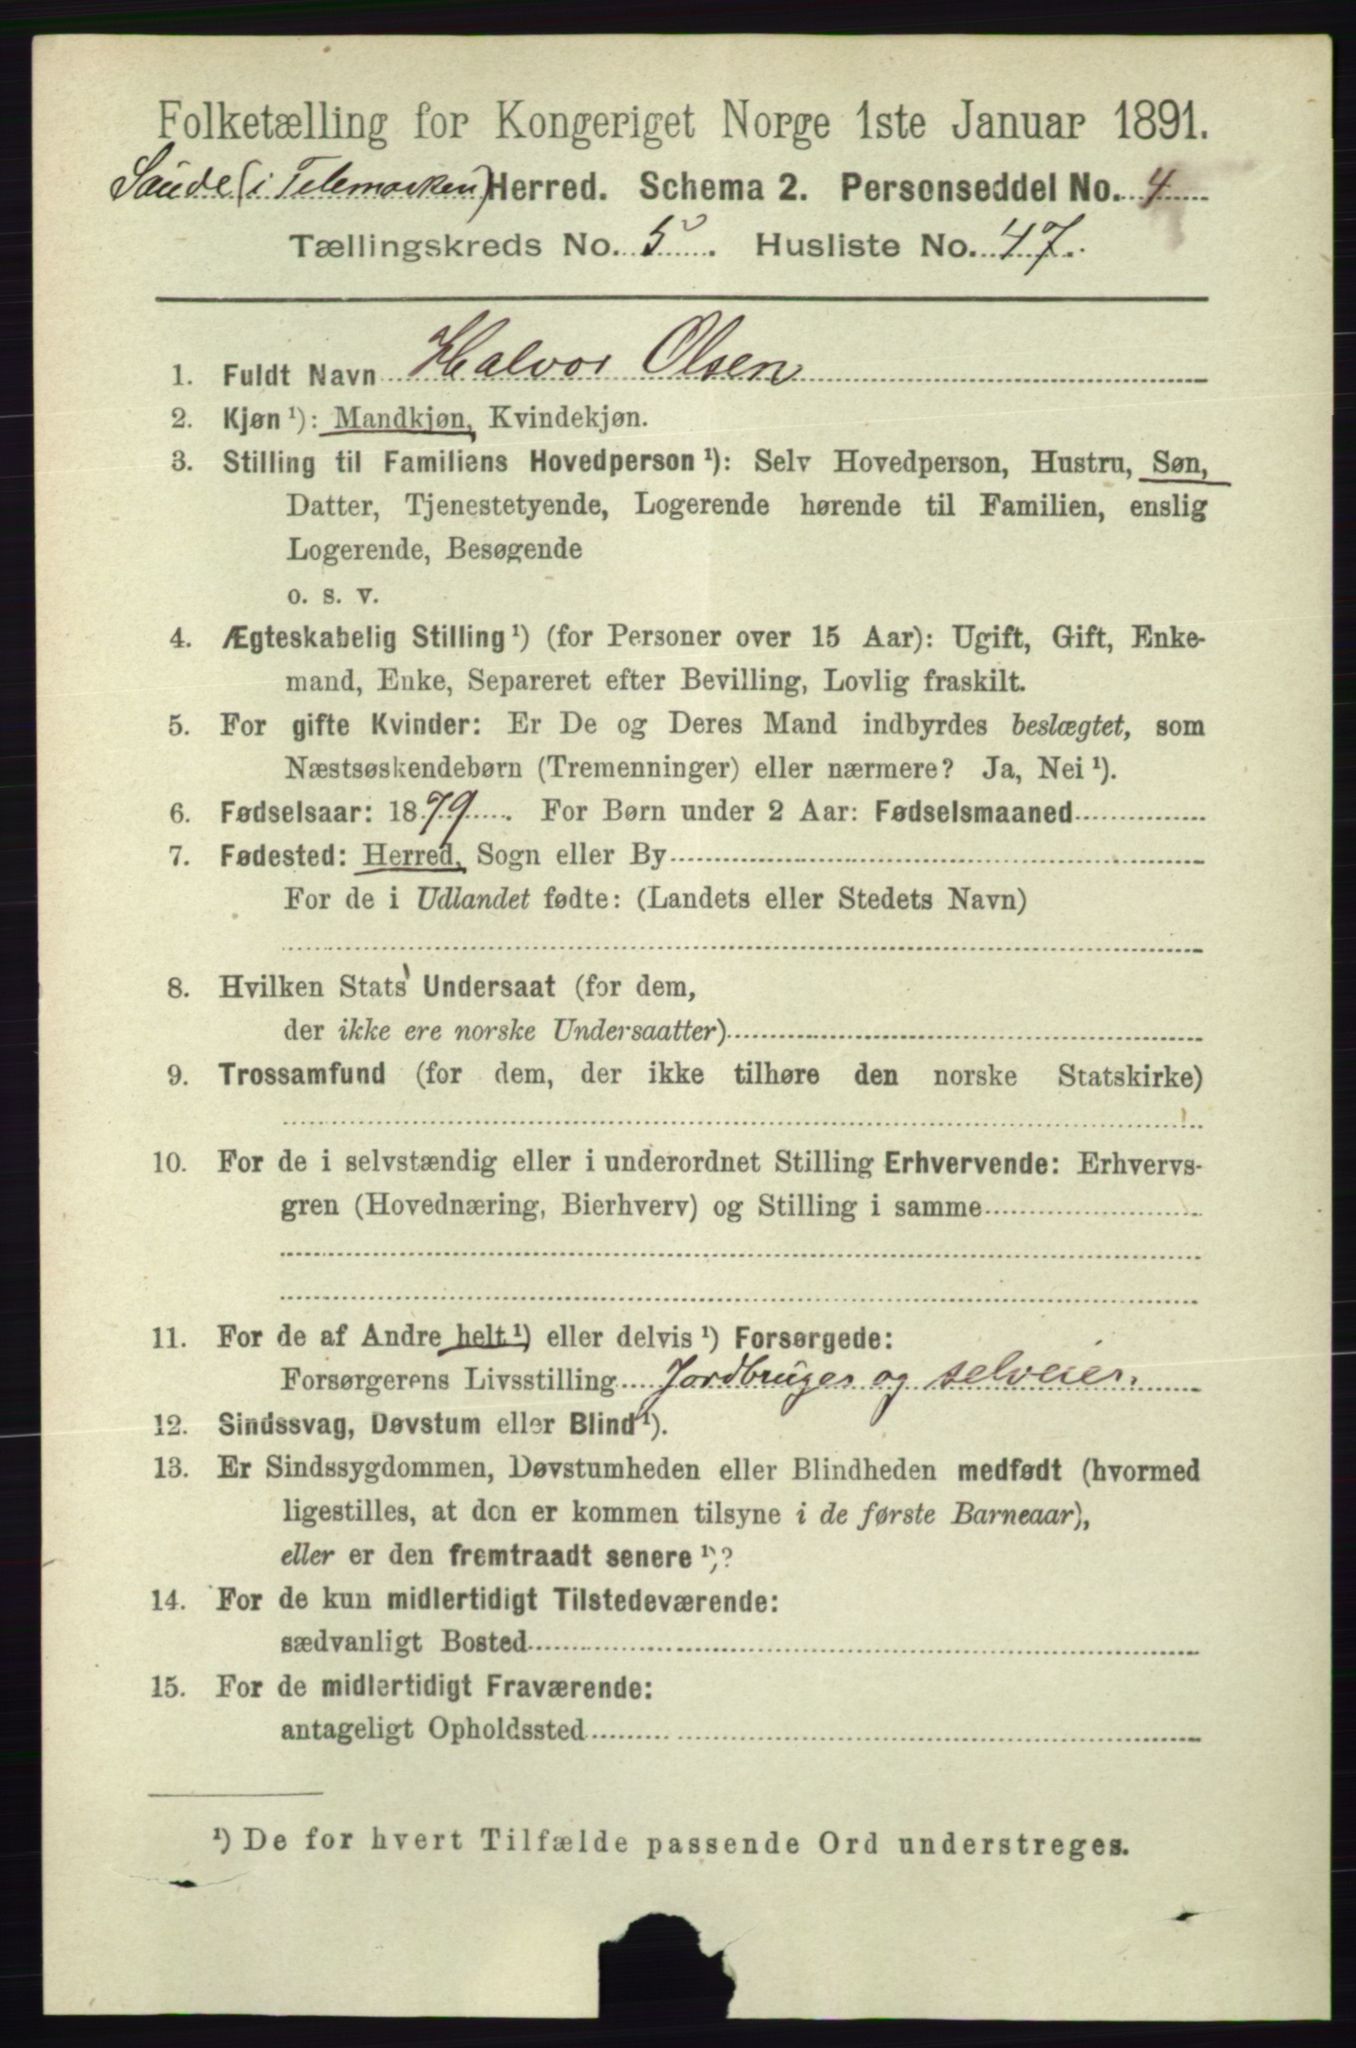 Folketælling for Kongeriget Norge 1ste Januar 1891.
Saude (i Telemarken) Herred. Schema 2. Personseddel No. 4
Tællingskreds No. 5. Husliste No. 47.
1. Fuldt Navn Halvor Olsen
2. Kjøn ¹): Mandkjøn, Kvindekjøn.
3. Stilling til Familiens Hovedperson ¹): Selv Hovedperson, Hustru, Søn,
Datter, Tjenestetyende, Logerende hørende til Familien, enslig
Logerende, Besøgende
o. s. v.
4. Ægteskabelig Stilling ¹) (for Personer over 15 Aar): Ugift, Gift, Enke-
mand, Enke, Separeret efter Bevilling, Lovlig fraskilt.
5. For gifte Kvinder: Er De og Deres Mand indbyrdes beslægtet, som
Næstsøskendebørn (Tremenninger) eller nærmere? Ja, Nei ¹).
6. Fødselsaar: 1879. For Børn under 2 Aar: Fødselsmaaned
7. Fødested: Herred, Sogn eller By
For de i Udlandet fødte: (Landets eller Stedets Navn)
8. Hvilken Stats Undersaat (for dem,
der ikke ere norske Undersaatter)
9. Trossamfund (for dem, der ikke tilhøre den norske Statskirke)
10. For de i selvstændig eller i underordnet Stilling Erhvervende: Erhvervs-
gren (Hovednæring, Bierhverv) og Stilling i samme
11. For de af Andre helt ¹) eller delvis ¹) Forsørgede:
Forsørgerens Livsstilling Jordbruger og selveier.
12. Sindssvag, Døvstum eller Blind ¹).
13. Er Sindssygdommen, Døvstumheden eller Blindheden medfødt (hvormed
ligestilles, at den er kommen tilsyne i de første Barneaar),
eller er den fremtraadt senere ¹)?
14. For de kun midlertidigt Tilstedeværende:
sædvanligt Bosted
15. For de midlertidigt Fraværende:
antageligt Opholdssted
¹) De for hvert Tilfælde passende Ord understreges.